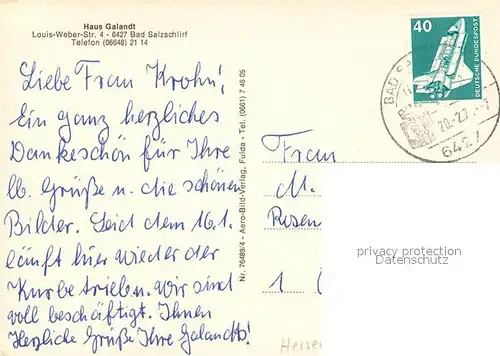 Haus Galandt
Louis-Weber-Str. 4 - 6427 Bad Salzschlirf
Telefon (06648) 21 14
Liebe Frau Krohn!
Ein ganz herzliches
Dankeschön für Ihre
lb. Grüße u. die schönen
Bilder. Seid dem 16.1.
läuft hier wieder der
Kurbetrieb u. wir sind
voll beschäftigt. Ihnen
Herzliche Grüße Ihre Galandts!
Nr. 76489/4 - Aero-Bild-Verlag, Fulda - Tel. (0661) 7 46 05
40
DEUTSCHE BUNDESPOST
BAD
20.-2.
6427
Frau
M.
Rosen
privacy protection
Datenschutz
1